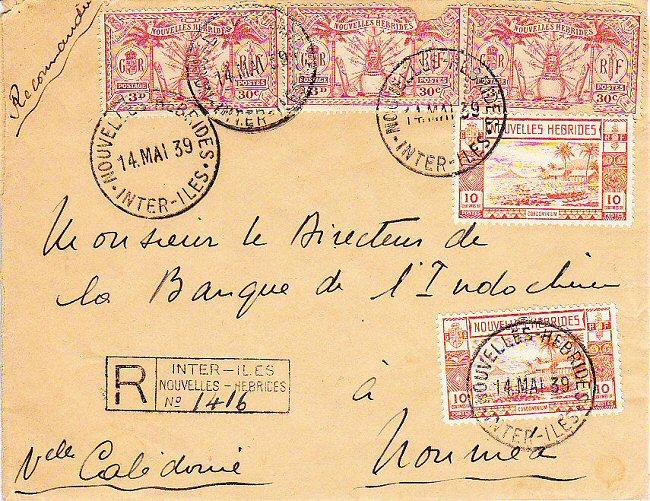 Recommandé
NOUVELLES HEBRIDES
G R R F
POSTAGE POSTES
3D 30c
NOUVELLES HEBRIDES
G R R F
POSTAGE POSTES
3D 30c
NOUVELLES HEBRIDES
G R R F
POSTAGE POSTES
3D 30c
NOUVELLES HEBRIDES
14 MAI 39
INTER-ILES
NOUVELLES-HEBRIDES
14.MAI 39
INTER-ILES
NOUVELLES-HEBRIDES
14.MAI 39
INTER-ILES
NOUVELLES HEBRIDES
R F
10 10
CENTIMES OR
POSTES
CONDOMINIUM
Monsieur le Directeur de
la Banque de l'Indochine
NOUVELLES HEBRIDES
R F
10 10
POSTES
CONDOMINIUM
NOUVELLES-HEBRIDES
14.MAI 39
INTER-ILES
R
INTER-ILES
NOUVELLES-HEBRIDES
No 1416
à
Nouméa
Nelle Calédonie